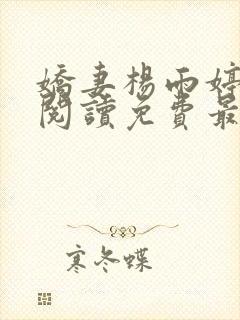 嬌妻楊雨婷
閱讀免費最
寒冬蝶